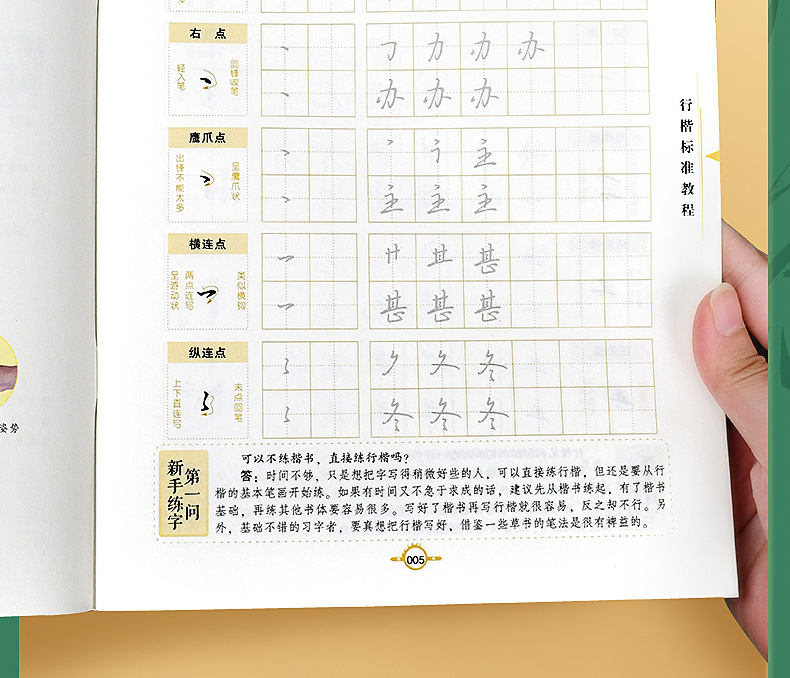 右点
轻入笔
回锋收笔
丁 力 办 办
办 办 办
鹰爪点
出锋不能太多
呈鹰爪状
主
主 主 主
横连点
呈游动状
两点连写
类似横钩
卄 甘 甚
甚 甚 甚
纵连点
上下直连写
末点回笔
夕 夂 冬
冬 冬 冬
新手练字
第一问
可以不练楷书，直接练行楷吗？
答：时间不够，只是想把字写得稍微好些的人，可以直接练行楷，但还是要从行
楷的基本笔画开始练。如果有时间又不急于求成的话，建议先从楷书练起，有了楷书
基础，再练其他书体要容易很多。写好了楷书再写行楷就很容易，反之却不行。另
外，基础不错的习字者，要真想把行楷写好，借鉴一些草书的笔法是很有裨益的。
005
行楷标准教程
姿势